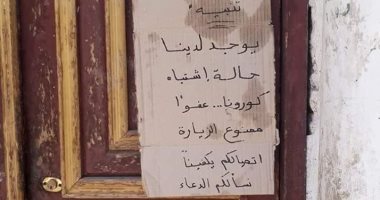 تنبيه:
يوجد لدينا
حالة إشتباه
كورونا... عفوًا
ممنوع الزيارة
اتصالكم يكفينا
نسألكم الدعاء